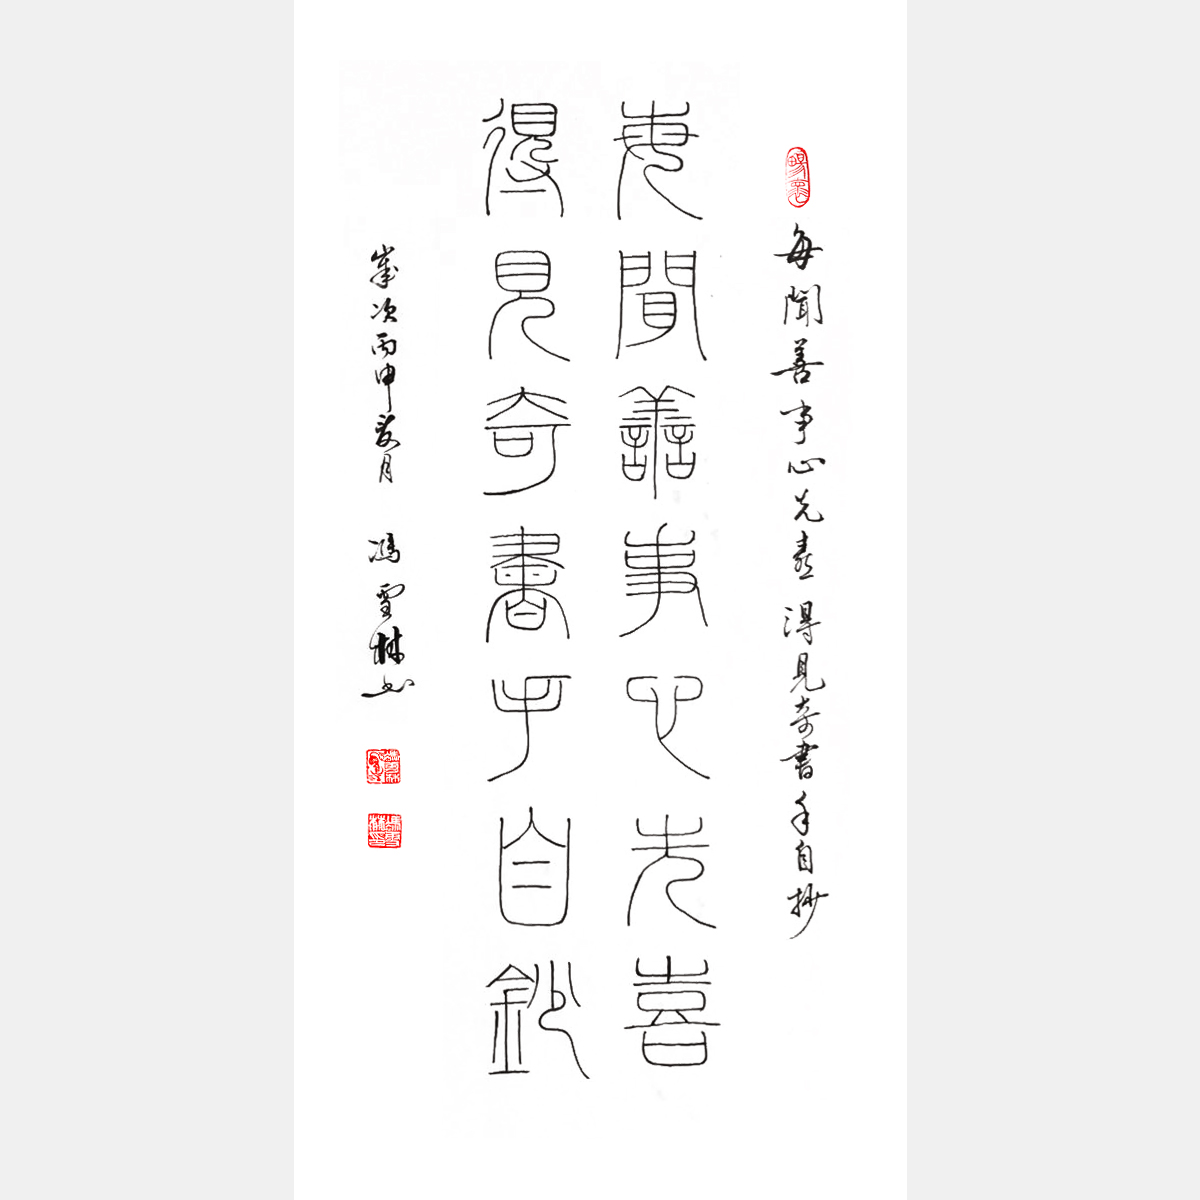 每聞善事心先喜 得見奇書手自抄
每聞善事心先喜
得見奇書手自鈔
歲次丙申夏月 馮雪林书